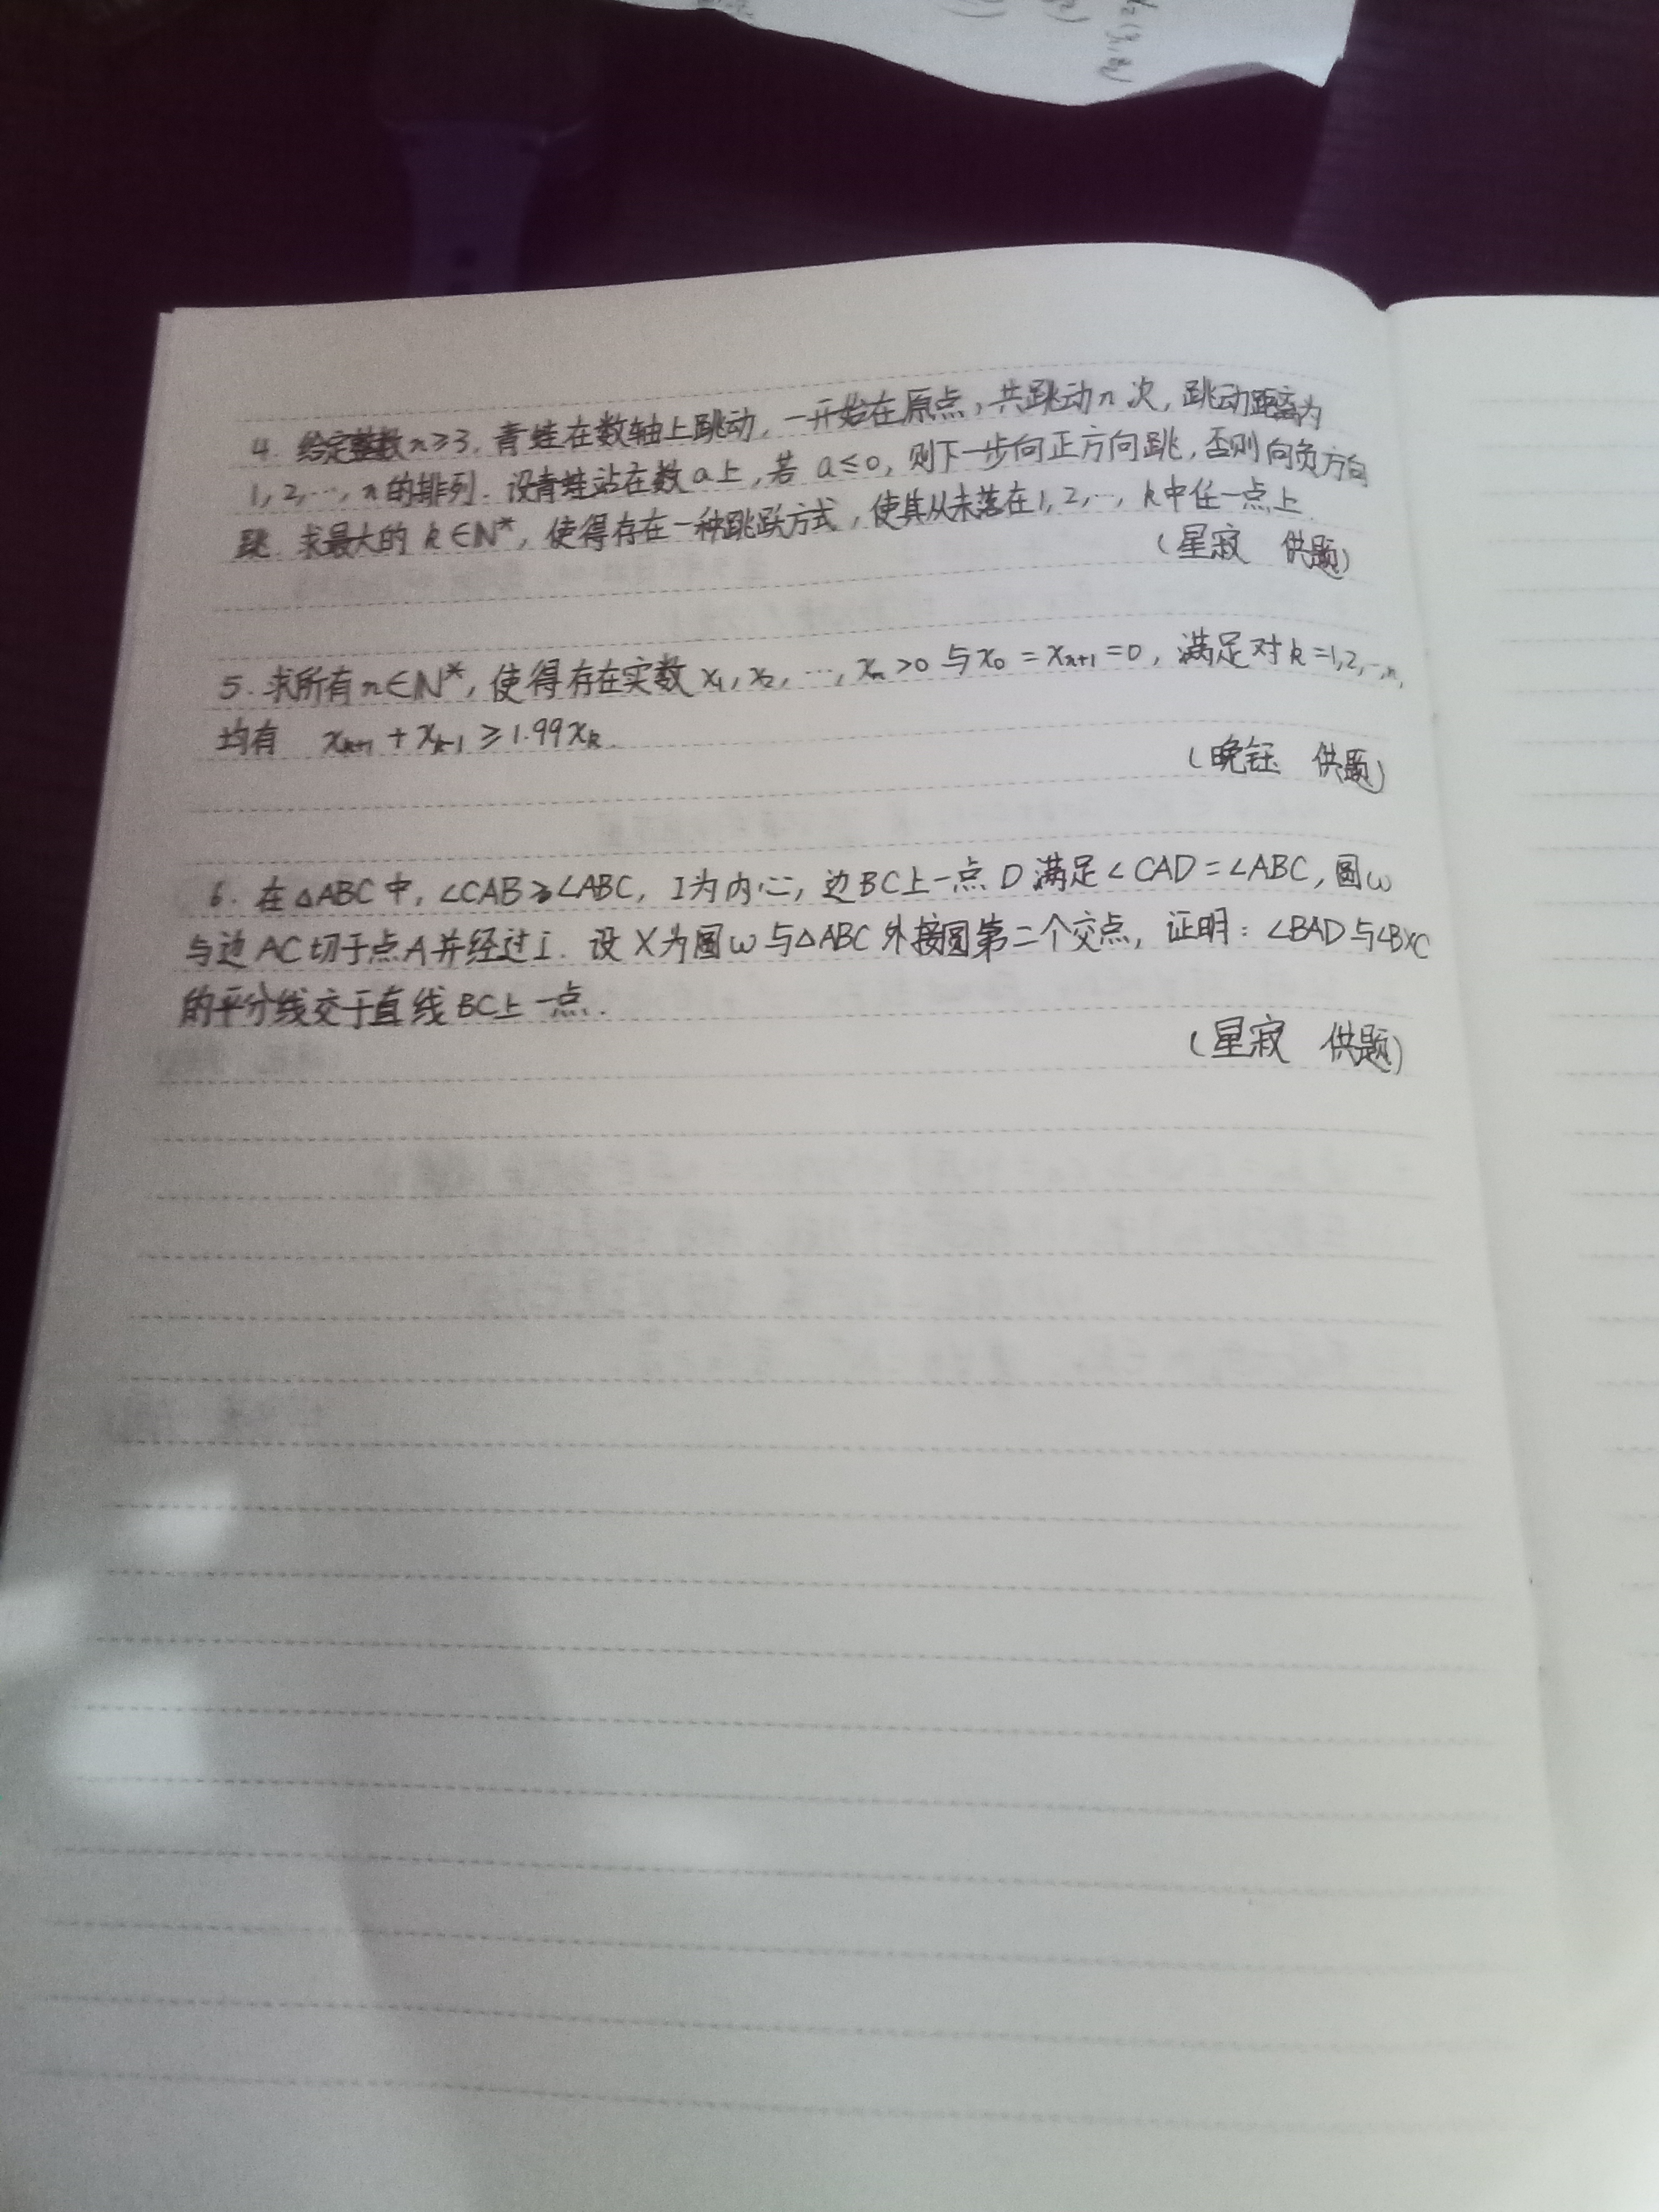 4. 给定整数n≥3, 青蛙在数轴上跳动, 一开始在原点, 共跳动n次, 跳动距离为
1,2,…,n的排列. 设青蛙站在数a上, 若 a≤0, 则下一步向正方向跳, 否则向负方向
跳. 求最大的 k∈N*, 使得存在一种跳跃方式, 使其从未落在1,2,…, k中任一点上.
(星寂 供题)
5. 求所有n∈N*, 使得存在实数 x₁, x₂, …, xₙ>0 与 x₀ = xₙ₊₁ = 0, 满足对k=1,2,…,n,
均有 xₖ₊₁ + xₖ₋₁ ≥ 1.99xₖ.
(晚钰 供题)
6. 在△ABC中, ∠CAB≥∠ABC, I为内心, 边BC上一点D满足∠CAD=∠ABC, 圆ω
与边AC切于点A并经过I. 设X为圆ω与△ABC外接圆第二个交点, 证明: ∠BAD与∠BXC
的平分线交于直线BC上一点.
(星寂 供题)